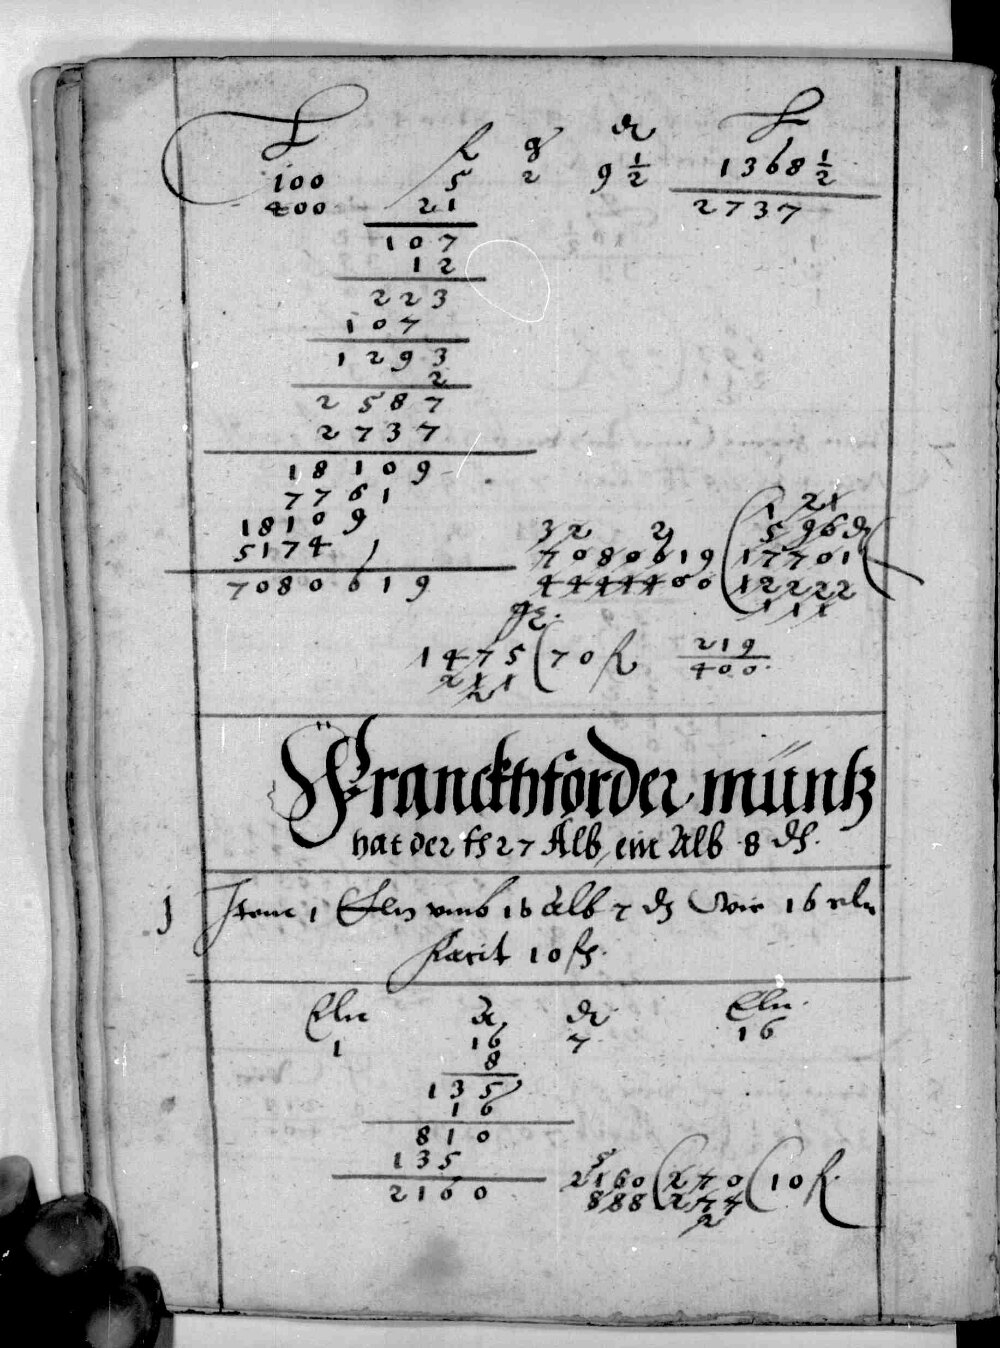 100 5 2 9 1/2 1368 1/2
400 21 2737
107
12
223
107
1293
2
2587
2737
18109
7761
18109
5174
7080619
21
32 2 596
7080619 (17701
44444400 (12222
111
1475 (70 fl 219/400
211
2
Franckhforder müntz
hat der fl 27 Alb, ein Alb 8 d.
1 Item 1 Eln umb 16 Alb 7 d Wie 16 eln
Facit 10 fl.
Eln A d Eln.
1 16 7 16
8
135
16
810
135
2160
5
2160 (270 (10 fl.
888 (277
2